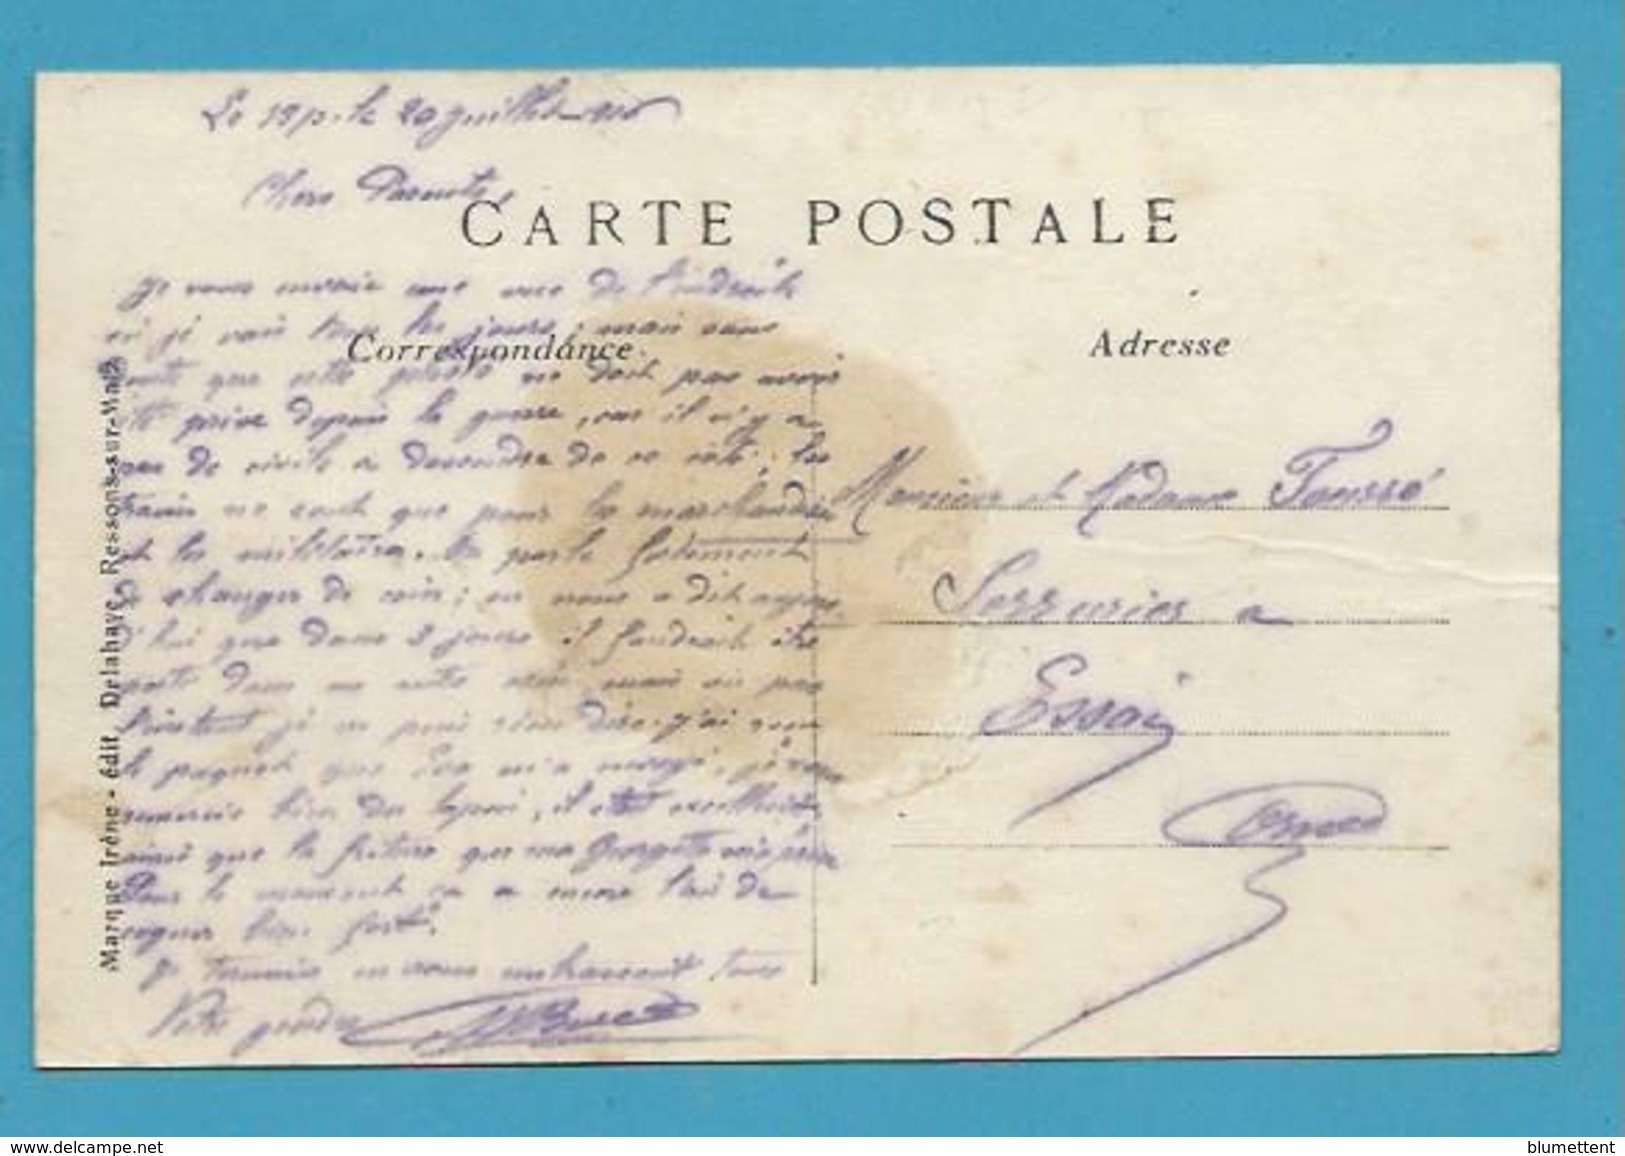 Le 19 p. le 20 juillet 1916
Chers Parents,
CARTE POSTALE
Correspondance
Adresse
Je vous envoie une vue de l'endroit
où je vais tous les jours; mais vous
que cette photo ne doit pas avoir
été prise depuis la guerre, car il n'y a
pas de civils a descendre de ce côté; les
trains ne sont que pour la marchandise
et les militaires. On parle fortement
de changer de coin; on nous a dit aujour
d'hui que dans 3 jours il faudrait être
dans un autre mais au pas
l'instant je ne puis rien dire. J'ai reçu
le paquet que Eva m'a envoyé, je vous
remercie bien du lapin, il était excellent,
ainsi que la friture que ma Georgette
Pour le moment ça a encore l'air de
cogner bien fort.
Je termine en vous embrassant tous
Votre gendre
Monsieur et Madame Foussé
Serrurier a
Essai
Orne
Marque Irène - édit. Delahaye, Ressons-sur-Matz
https://www.delcampe.net
blumettent